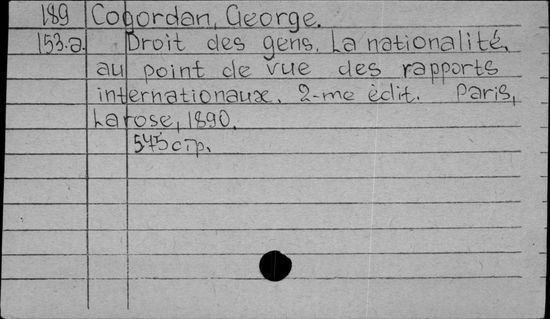 189 Cogordan, George.
153.a. Droit des gens. La nationalité,
au point de vue des rapports
internationaux. 2-me édit. Paris,
Larose, 1890.
545 стр.